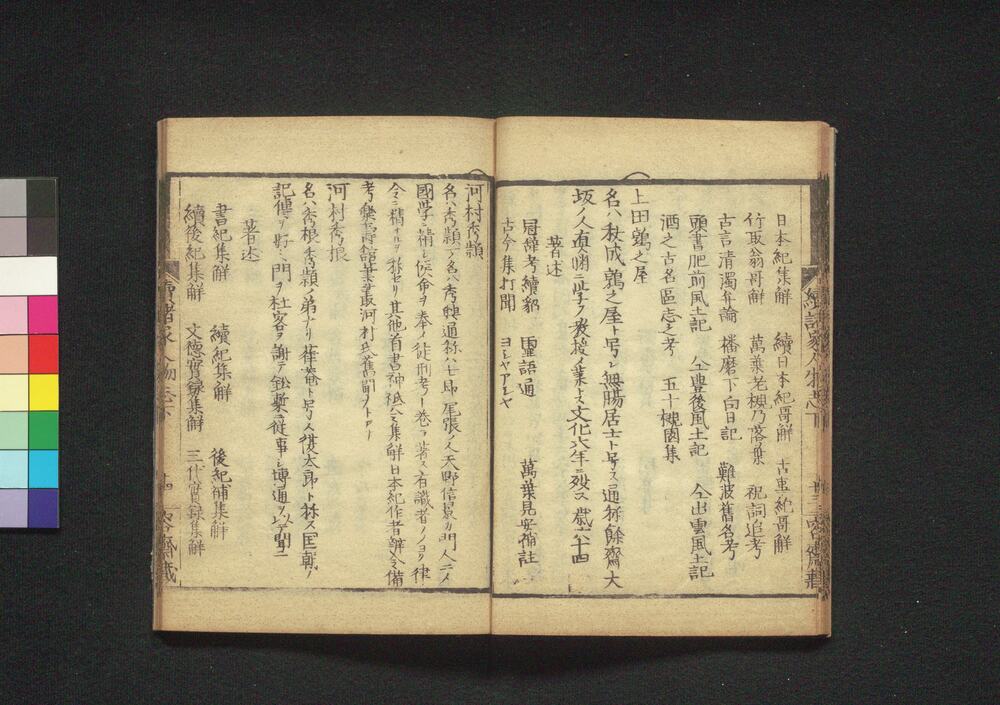 日本紀集解 續日本紀哥解 古事紀哥解
竹取翁哥解 萬葉老槻乃落葉 祝詞追考
古言清濁弁論 播磨下向日記 難波舊名考
頭書肥前風土記 仝豊後風土記 仝出雲風土記
酒之古名區志之考 五十槻園集
上田鶉之屋
名ハ秋成鶉之屋ト号シ無腸居士ト号ス通称餘齋大
坂ノ人直淵ニ學ク教授ノ業トス文化六年ニ歿ス歳六十四
著述
冠辞考續貂 霊語通 萬葉見安補註
古今集打聞 ヨシヤアシヤ
河村秀頴
名ハ秀頴一名ハ秀興通称ハ七郎尾張ノ人天野信景カ門人ニメ
國學ニ精シ侯命ヲ奉メ徒刑考一巻ヲ著ス有識者ノノヨク律
令ニ精キヲ称セリ其他首書神祇令集解日本紀作者辨令備
考樂壽館叢書河村氏舊聞ヲトアリ
河村秀根
名ハ秀根秀頴ノ弟ナリ葎菴ト号メ復太郎ト称ス国朝ノ
記傳ヲ好ミ門ヲ杜客ヲ謝テ鉛槧ニ從事シ博通ヲ以テ聞ユ
著述
書紀集解 續紀集解 後紀補集解
續後紀集解 文徳實録集解 三代實録集解